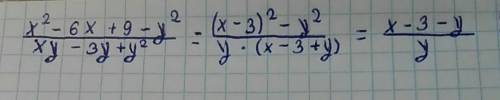 (x² - 6x + 9 - y²)/(xy - 3y + y²) = ((x-3)² - y²)/(y · (x-3+y)) = (x-3-y)/y